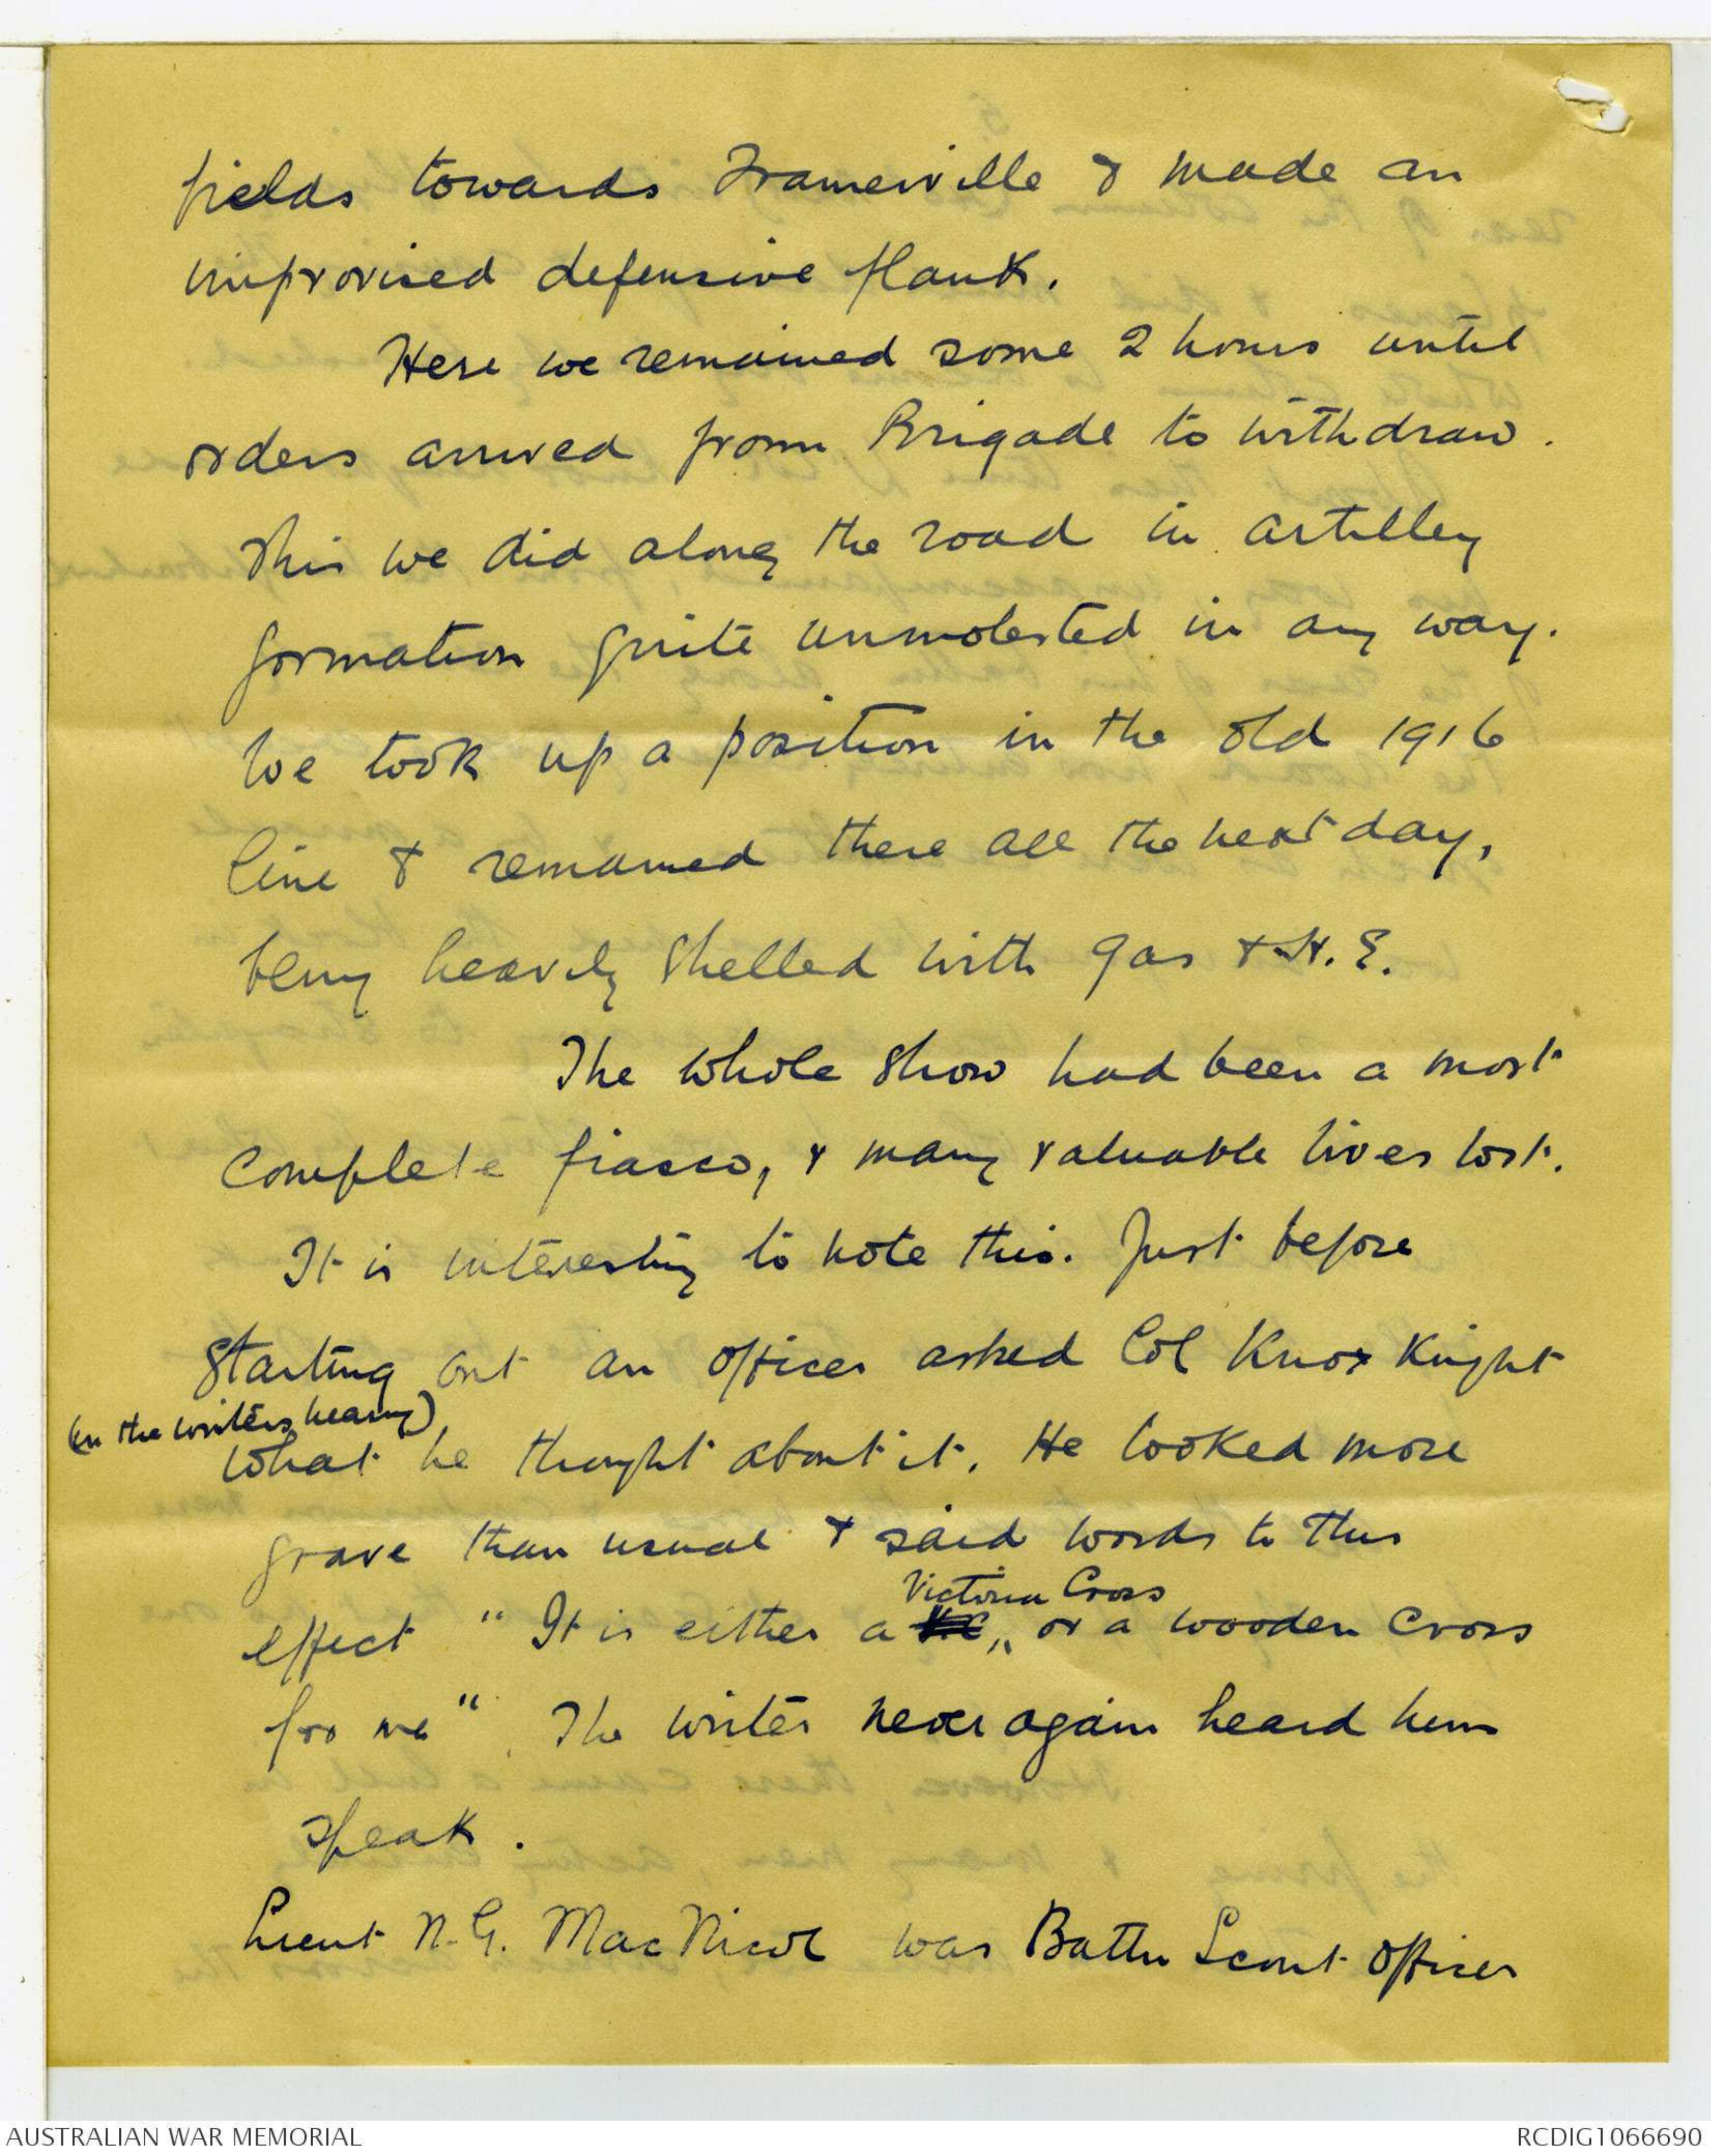 fields towards Framerville & made an
improvised defensive flank.
Here we remained some 2 hours until
orders arrived from Brigade to withdraw.
This we did along the road in artillery
formation quite unmolested in any way.
We took up a position in the old 1916
line & remained there all the next day,
being heavily shelled with gas & H.E.
The whole show had been a most
complete fiasco, & many valuable lives lost.
It is interesting to note this. Just before
starting out an officer asked Col Knox Knight
(in the writers hearing)
what he thought about it. He looked more
grave than usual & said words to this
Victoria Cross
effect "It is either a V.C., or a wooden cross
for me". The writer never again heard him
speak.
Lieut N.G. MacNicol was Battn Scout Officer
AUSTRALIAN WAR MEMORIAL
RCDIG1066690